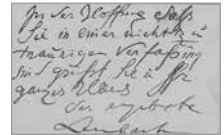 In der Hoffnung daß
Sie in einer nicht zu
traurigen Verfassung
sind grüßt Sie u Ihr
ganzes Haus
der ergebene
Lenbach